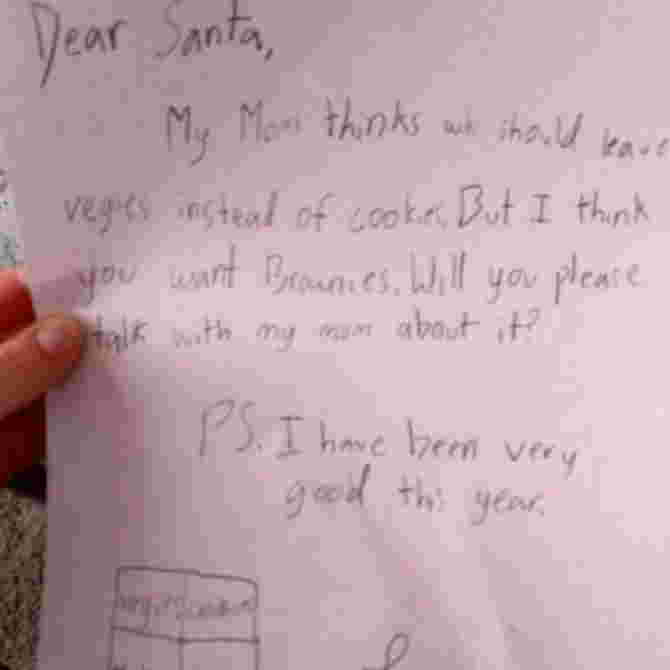 Dear Santa,
My Mom thinks we should leave
vegies instead of cookies. But I think
you want Brownies. Will you please
talk with my mom about it?
PS. I have been very
good this year.
vegies cookies